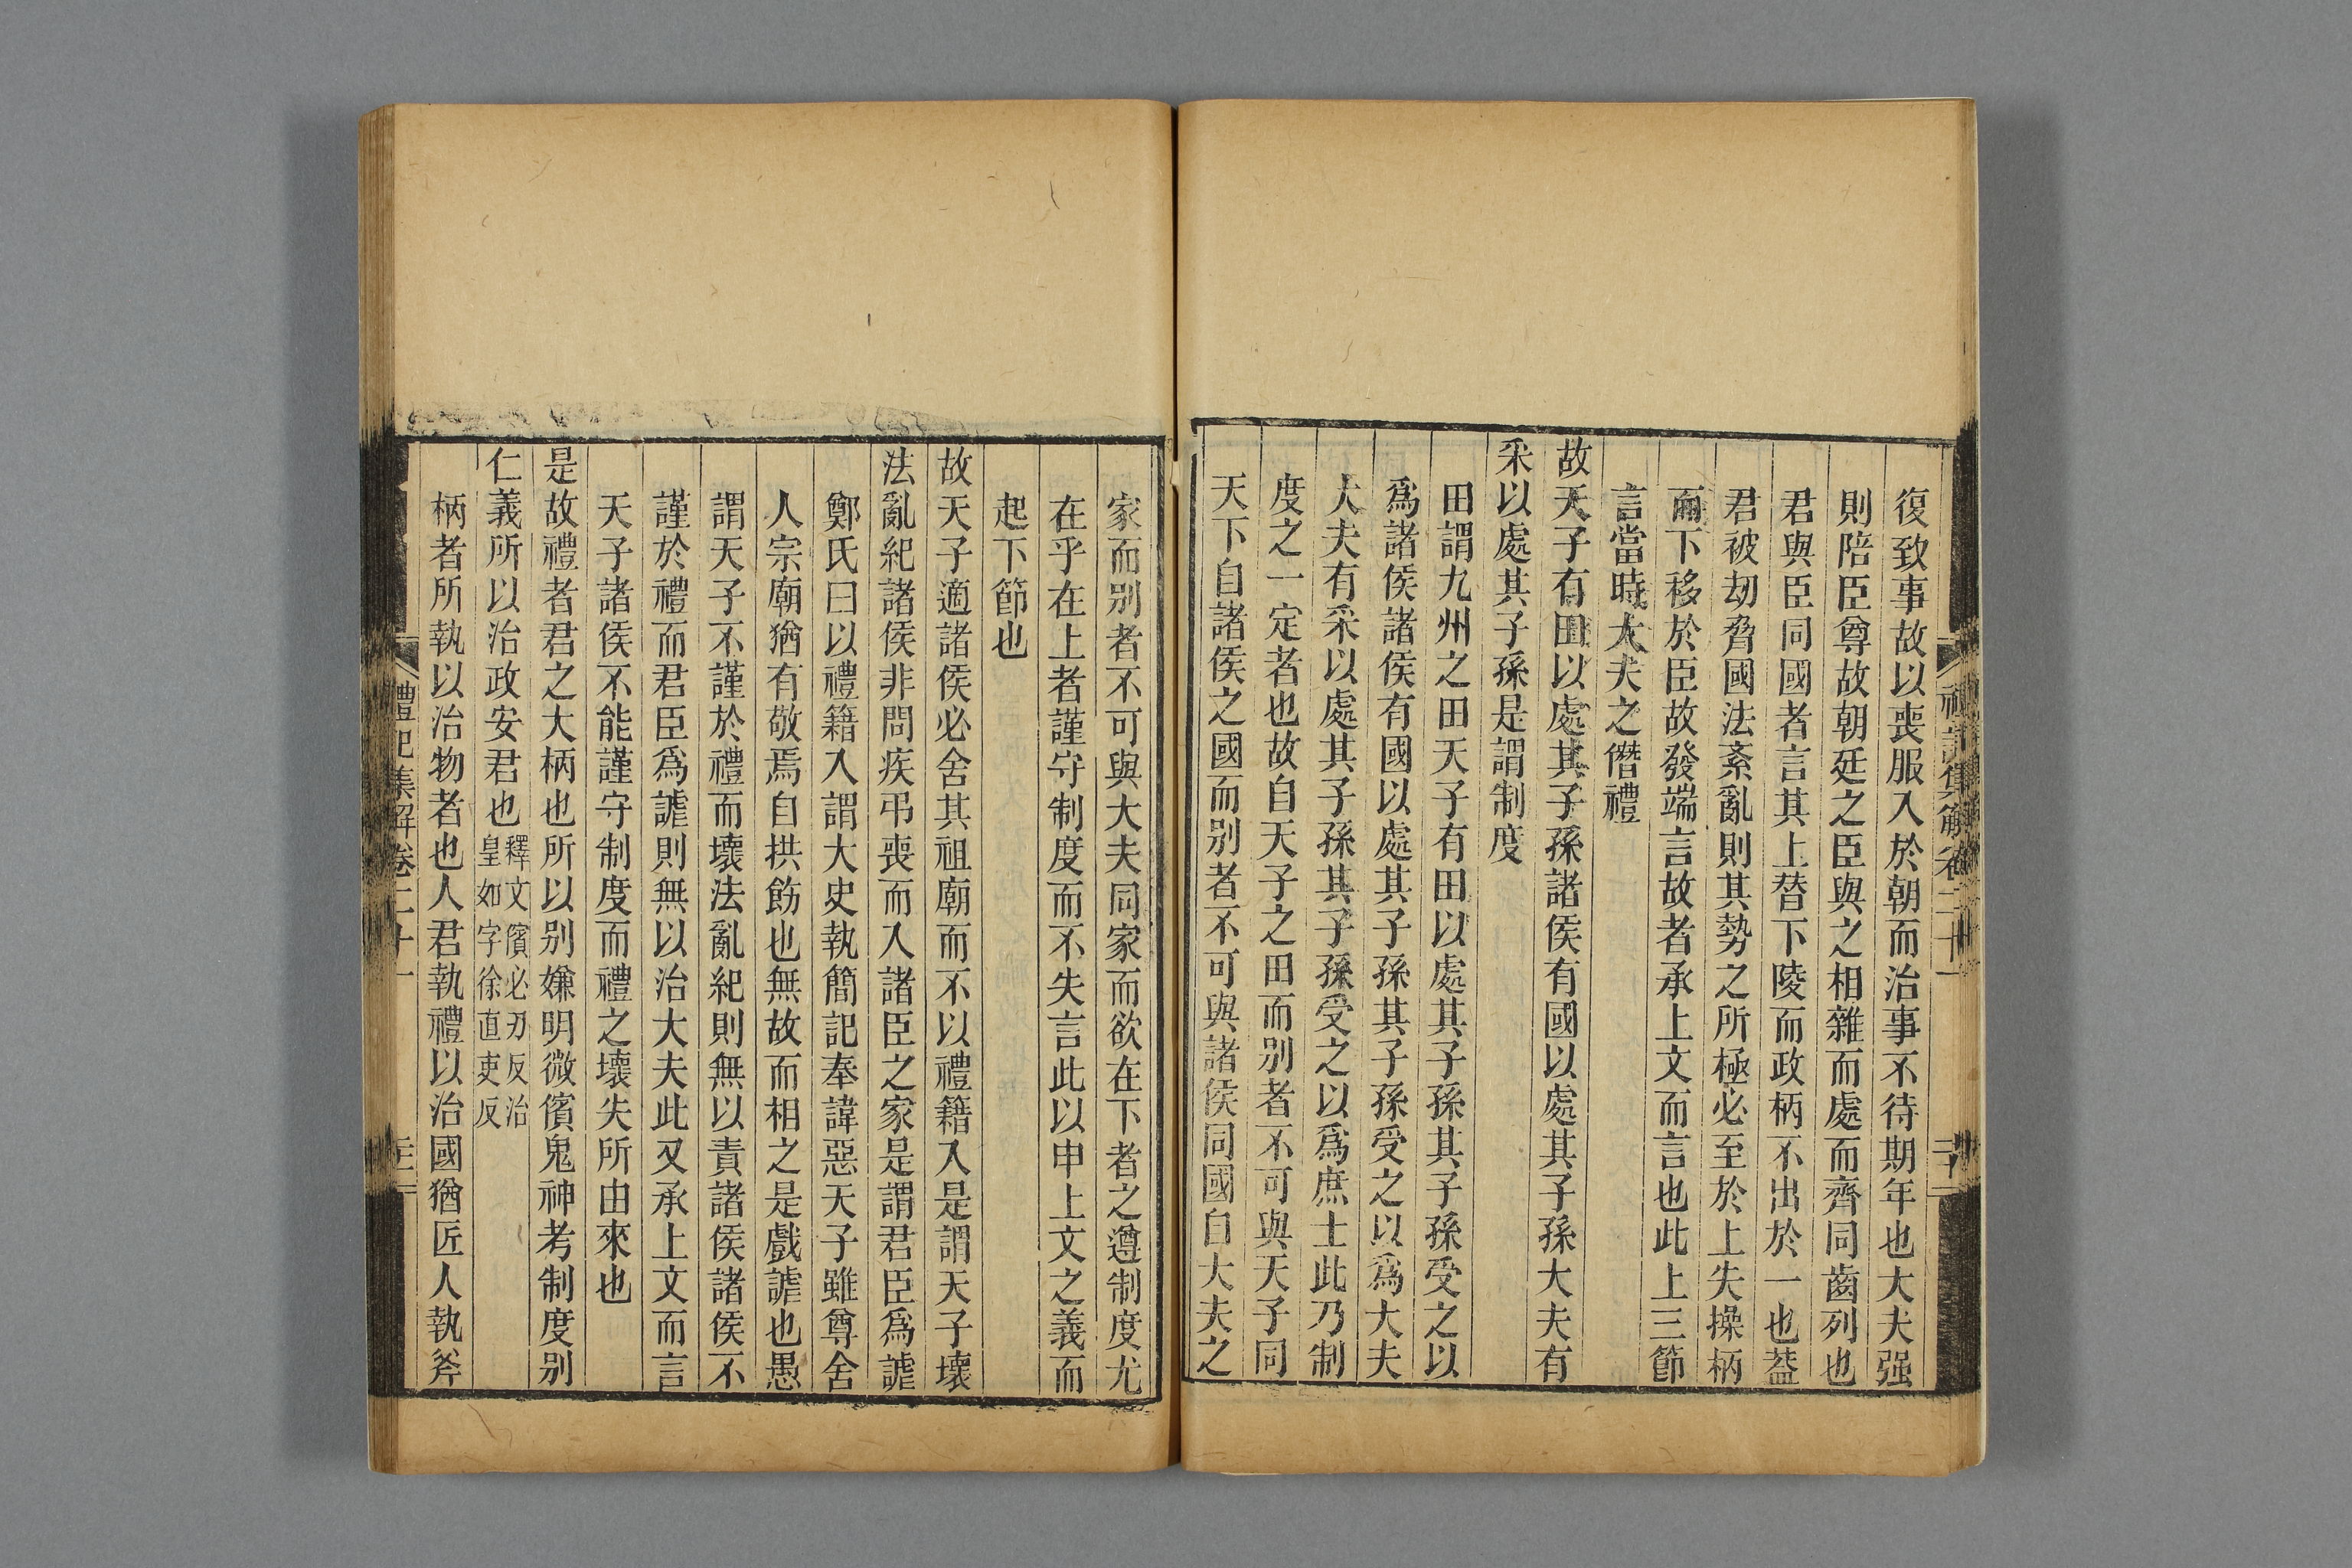 復致事故以喪服入於朝而治事不待期年也大夫强
則陪臣尊故朝廷之臣與之相雜而處而齊同齒列也
君與臣同國者言其上替下陵而政柄不出於一也葢
君被刼脅國法紊亂則其勢之所極必至於上失操柄
而下移於臣故發端言故者承上文而言也此上三節
言當時大夫之僭禮
故天子有田以處其子孫諸侯有國以處其子孫大夫有
采以處其子孫是謂制度
田謂九州之田天子有田以處其子孫其子孫受之以
爲諸侯諸侯有國以處其子孫其子孫受之以爲大夫
大夫有采以處其子孫其子孫受之以爲庶士此乃制
度之一定者也故自天子之田而别者不可與天子同
天下自諸侯之國而别者不可與諸侯同國自大夫之
家而别者不可與大夫同家而欲在下者之遵制度尤
在乎在上者謹守制度而不失言此以申上文之義而
起下節也
故天子適諸侯必舍其祖廟而不以禮籍入是謂天子壞
法亂紀諸侯非問疾弔喪而入諸臣之家是謂君臣爲謔
鄭氏曰以禮籍入謂大史執簡記奉諱惡天子雖尊舍
人宗廟猶有敬焉自拱飭也無故而相之是戲謔也愚
謂天子不謹於禮而壞法亂紀則無以責諸侯諸侯不
謹於禮而君臣爲謔則無以治大夫此又承上文而言
天子諸侯不能謹守制度而禮之壞失所由來也
是故禮者君之大柄也所以别嫌明微儐鬼神考制度别
仁義所以治政安君也釋文儐必刃反治皇如字徐直吏反
柄者所執以治物者也人君執禮以治國猶匠人執斧
禮記集解卷二十一